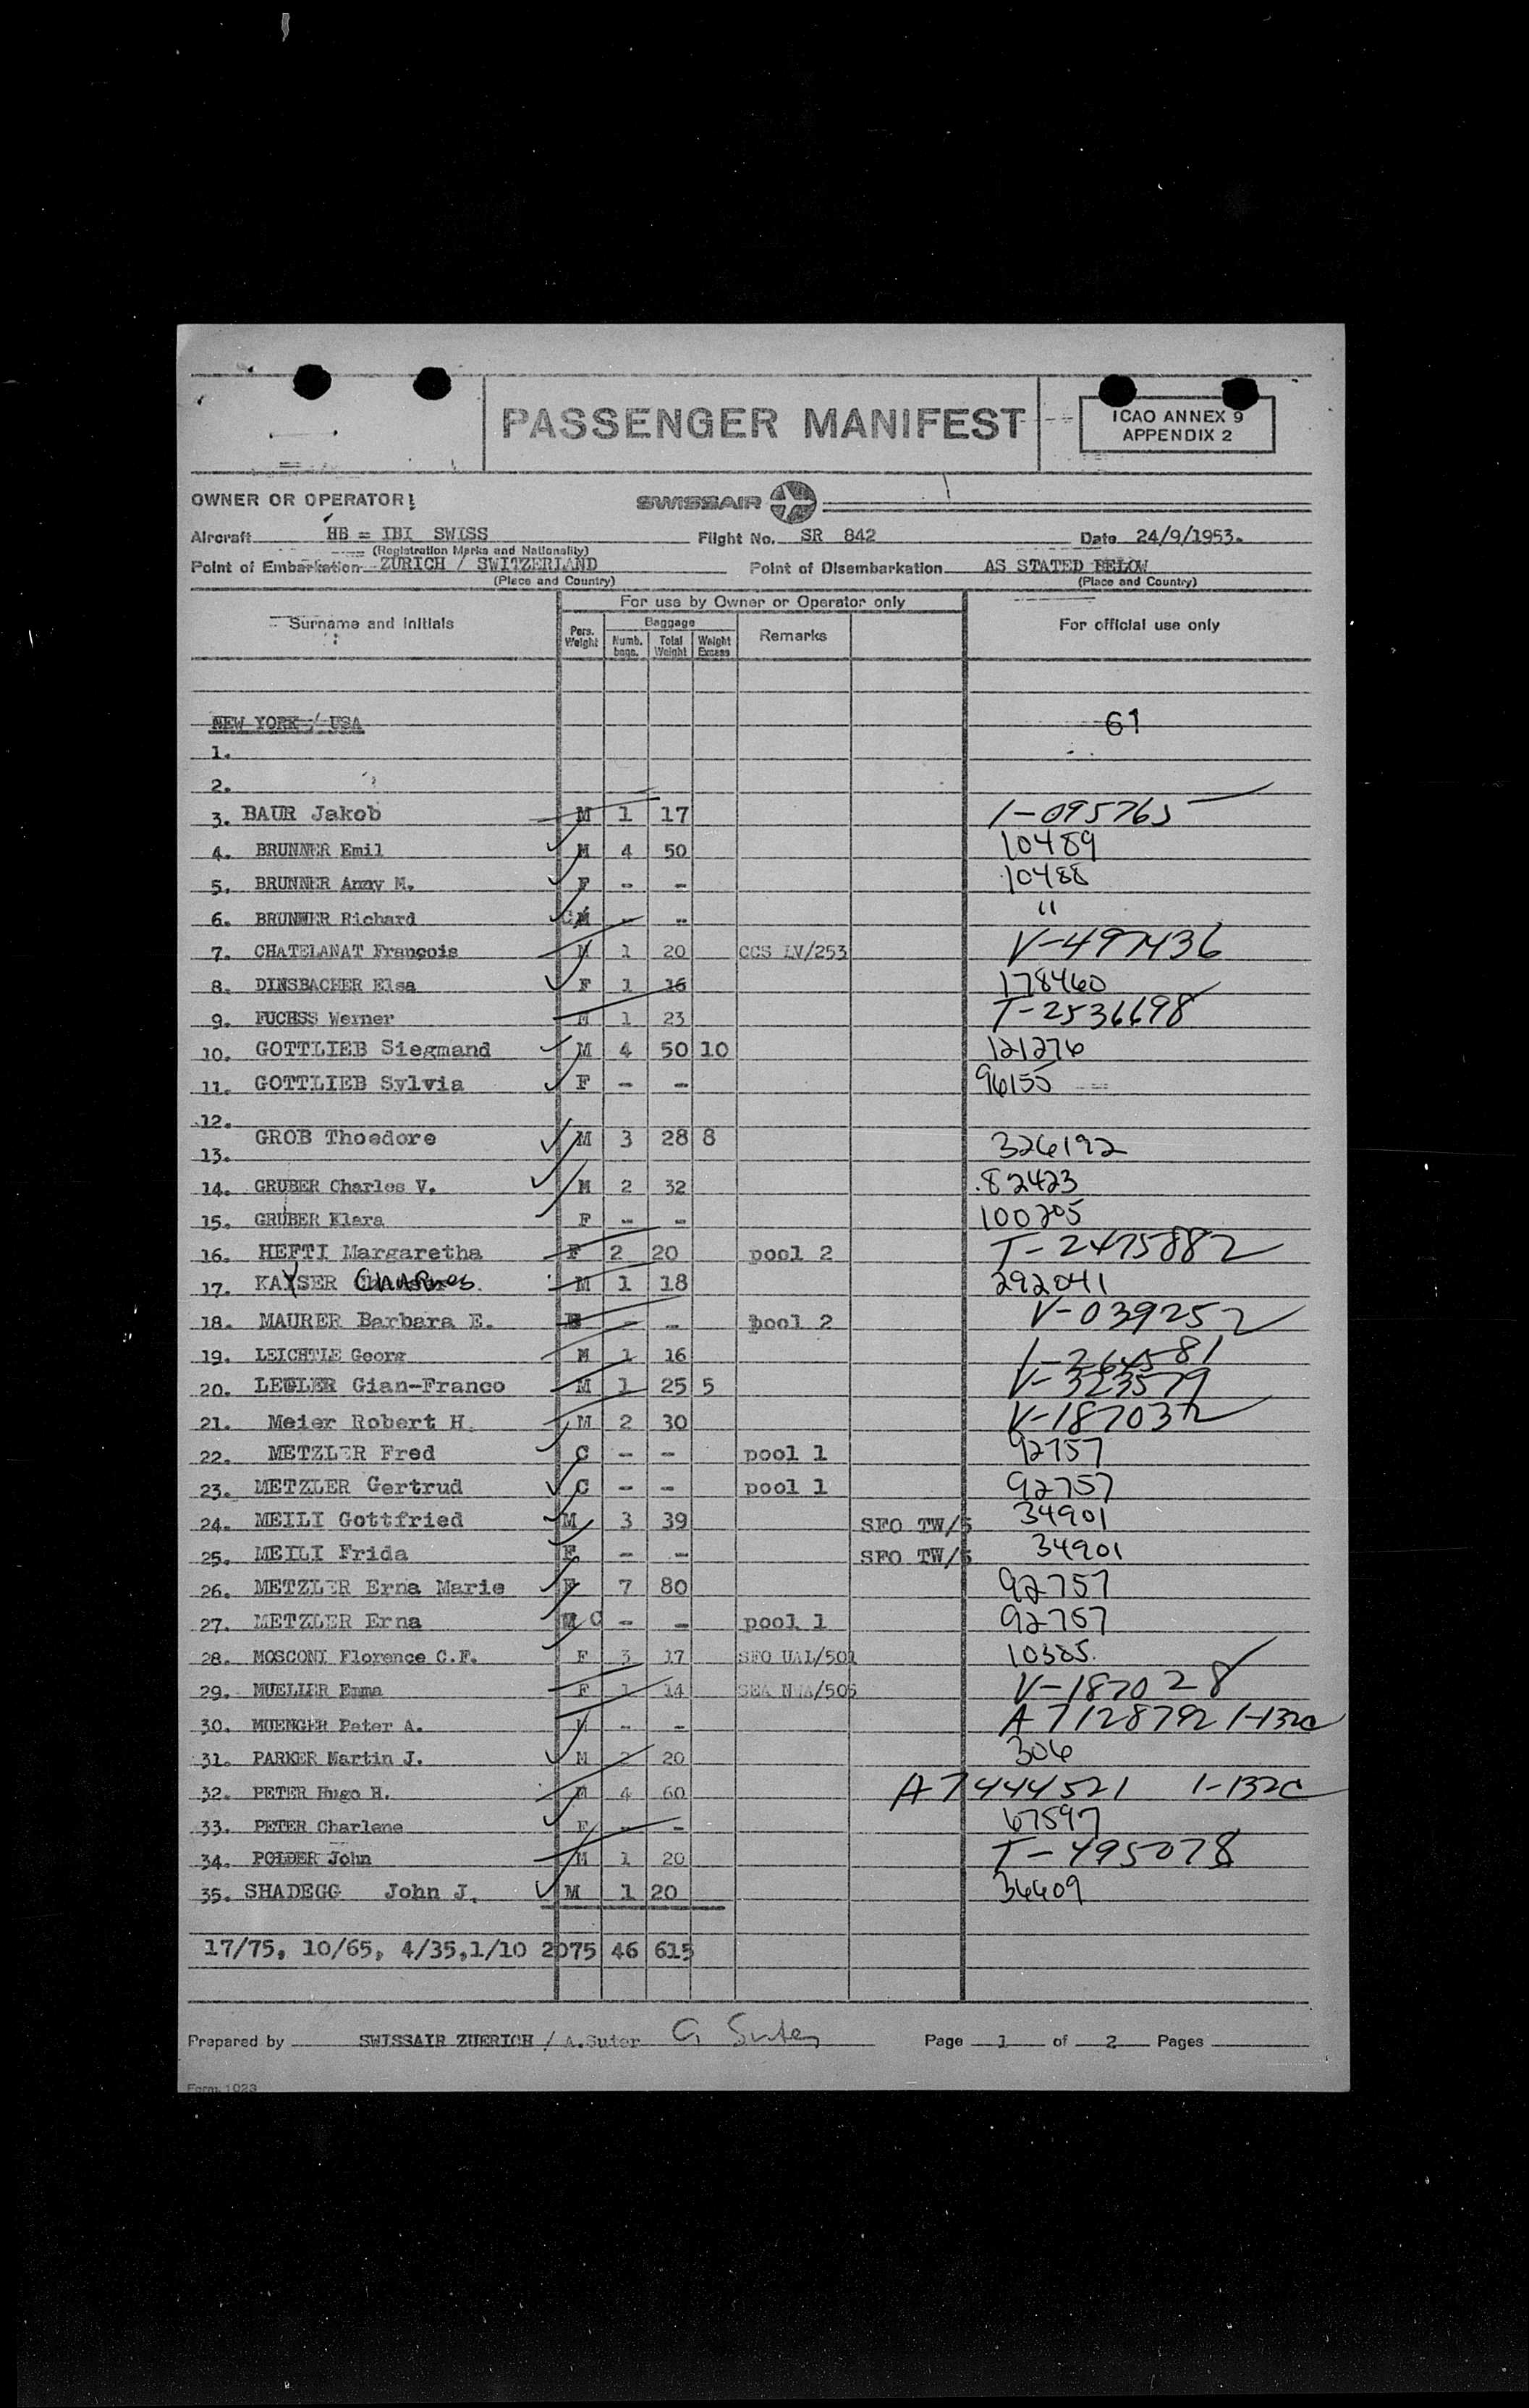 PASSENGER MANIFEST
ICAO ANNEX 9
APPENDIX 2
OWNER OR OPERATOR: SWISSAIR
Aircraft HB = IBI SWISS Flight No. SR 842 Date 24/9/1953.
(Registration Marks and Nationality)
Point of Embarkation ZURICH / SWITZERLAND Point of Disembarkation AS STATED BELOW
(Place and Country) (Place and Country)
For use by Owner or Operator only
Surname and Initials Pers. Weight Baggage Numb. bags. Total Weight Weight Excess Remarks For official use only
NEW YORK / USA 61
1.
2.
3. BAUR Jakob M 1 17 1-095765
4. BRUNNER Emil M 4 50 10489
5. BRUNNER Anny M. F - - 10488
6. BRUNNER Richard CM - - "
7. CHATELANAT François M 1 20 CCS LV/253 V-497436
8. DINSBACHER Elsa F 1 16 178460
9. FUCHSS Werner M 1 23 T-2536698
10. GOTTLIEB Siegmand M 4 50 10 121276
11. GOTTLIEB Sylvia F - - 96155
12.
GROB Thoedore M 3 28 8 326192
13.
14. GRUBER Charles V. M 2 32 82423
15. GRUBER Klara F - - 100205
16. HEFTI Margaretha F 2 20 pool 2 T-2475882
17. KAYSER Charles M 1 18 292041
18. MAURER Barbara E. - - pool 2 V-039252
19. LEICHTLE Georg M 1 16
20. LEGLER Gian-Franco M 1 25 5 V-323579
21. Meier Robert H. M 2 30 V-187032
22. METZLER Fred C - - pool 1 92757
23. METZLER Gertrud C - - pool 1 92757
24. MEILI Gottfried M 3 39 SFO TW/5 34901
25. MEILI Frida F - - SFO TW/5 34901
26. METZLER Erna Marie F 7 80 92757
27. METZLER Erna M C - - pool 1 92757
28. MOSCONI Florence C.F. F 3 17 SFO UAL/501 10385.
29. MUELLER Emma F 1 14 SEA NWA/505 V-187028
30. MUENGER Peter A. M - - A7128792 1-132c
31. PARKER Martin J. M 2 20 306
32. PETER Hugo H. M 4 60 A7444521 1-132c
33. PETER Charlene F - - 67597
34. POLDER John M 1 20 T-495078
35. SHADEGG John J. M 1 20 36609
17/75, 10/65, 4/35,1/10 2075 46 615
Prepared by SWISSAIR ZUERICH / A.Suter A Suter Page 1 of 2 Pages
Form. 1023